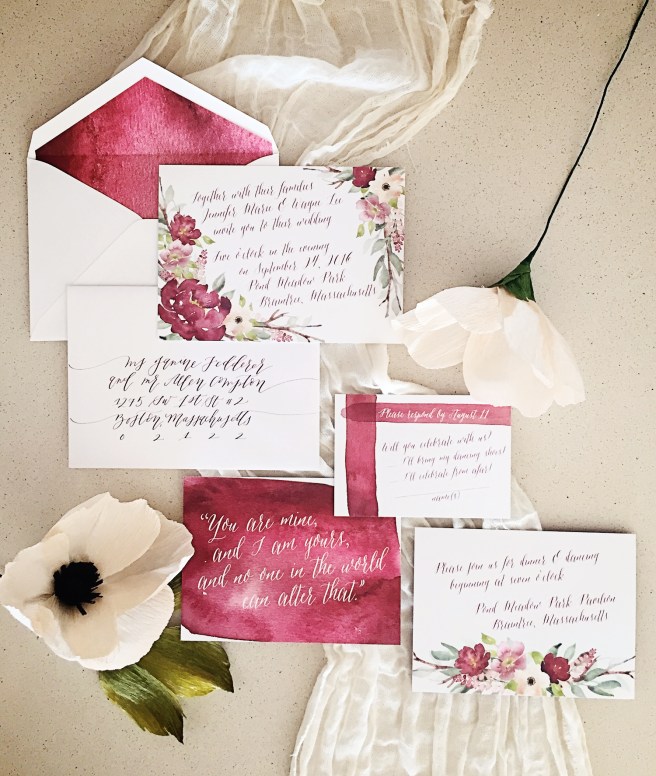 Together with their families
Jennifer Marie & Teague Lee
invite you to their wedding
five o'clock in the evening
on September 24, 2016
Pond Meadow Park
Braintree, Massachusetts
Ms Janine Fedderer
and mr Allen Compton
1275 SW 1st St #2
Boston, Massachusetts
0 2 1 2 2
Please respond by August 21
Will you celebrate with us?
I'll bring my dancing shoes!
I'll celebrate from afar!
name(s)
"You are mine,
and I am yours,
and no one in the world
can alter that."
Please join us for dinner & dancing
beginning at seven o'clock
Pond Meadow Park Pavilion
Braintree, Massachusetts